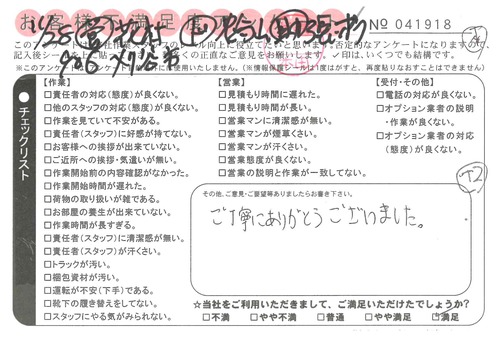 お客様 満足度
№ 041918
このアンケートは
社作業スタッフのレベル向上に役立てたいと思います。否定的なアンケートになりますので、
記入後シールを上に貼り
多くの正直なご意見をお願いします。✓印は、いくつでも結構です。
(※このアンケートは
使用いたしません。)(※情報保護シールは1度はがすと、再度貼りなおすことはできません)
チェックリスト
【作業】
□責任者の対応(態度)が良くない。
□他のスタッフの対応(態度)が良くない。
□作業を見ていて不安がある。
□責任者(スタッフ)に好感が持てない。
□お客様への挨拶が出来ていない。
□ご近所への挨拶・気遣いが無い。
□作業開始前の内容確認がなかった。
□作業開始時間が遅れた。
□荷物の取り扱いが雑である。
□お部屋の養生が出来ていない。
□作業時間が長すぎる。
□責任者(スタッフ)に清潔感が無い。
□責任者(スタッフ)が汗くさい。
□トラックが汚い。
□梱包資材が汚い。
□運転が不安(下手)である。
□靴下の履き替えをしてない。
□スタッフにやる気がみられない。
【営業】
□見積もり時間に遅れた。
□見積もり時間が長い。
□営業マンに清潔感が無い。
□営業マンが煙草くさい。
□営業マンが汗くさい。
□営業態度が良くない。
□営業の説明と作業が一致してない。
【受付・その他】
□電話の対応が良くない。
□オプション業者の説明
・作業が良くない。
□オプション業者の対応
(態度)が良くない。
その他、ご意見・ご要望等ありましたらお書き下さい。
ご丁寧にありがとうございました。
☆当社をご利用いただきまして、ご満足いただけたでしょうか?
□不満 □やや不満 □普通 □やや満足 □満足